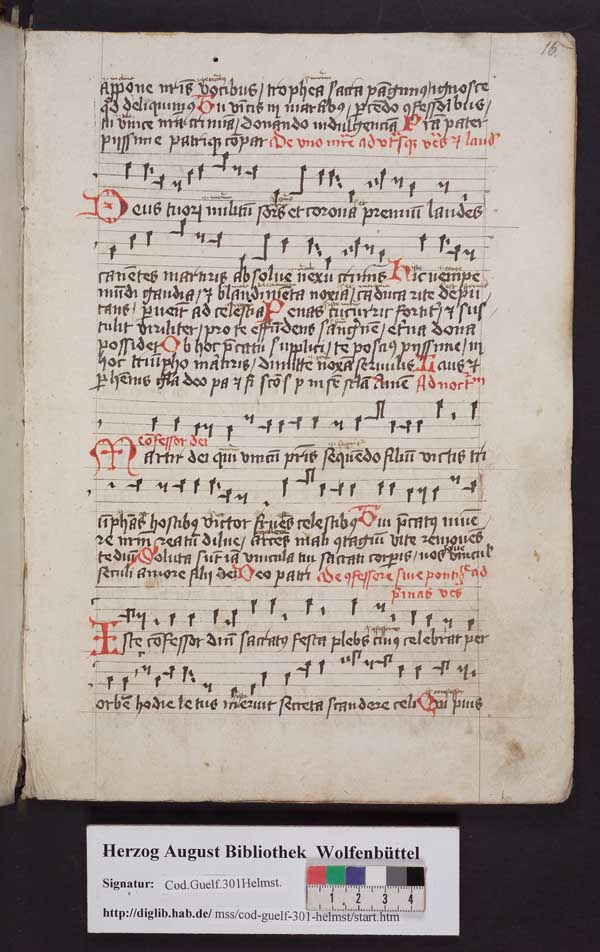 16.
appone nris vocibus / trophea sacra pangimus ignosce
qd deliquimus Tu vincis in martirib9 / parcendo 9fessoribus /
tu vince nra crimina / donando indulgencia Presta pater
pyssime patriq3 compar De vno mre ad vtrasq3 vesperas et laudes
Deus tuorū militū sors et corona premiū laudes
canentes martiris absolue nexu criminis Hic nempe
mūdi gaudia / et blandimenta noxia / caduca rite deputans / peruenit ad celestia Penas cucurrit fortiter / et sustulit viriliter / pro te effūdens sanguinē / eterna dona
possidet Ob hoc precatu supplici / te poscim9 pyssime / in
hoc triūpho martiris / dimitte noxā seruulis Laus et
perhennis gloria deo patri et filio Amen Ad noctm
confessor dei
Martir dei qui vnicū patris sequendo filiū victis triūphas hostib9 victor fruens celestib9 Tui precatus munere nrm reatū dilue / arcens mali 9tagiū vite remouens
tediū Soluta sunt iā vincula tui sacrati corporis / nos solue vinculis
seculi amore filij dei Deo patri De 9fessore siue pontifice ad
primas vesperas
Iste confessor dnī sacratus festa plebs cui9 celebrat per
orbē hodie letus meruit secreta scandere celi Qui pius
Herzog August Bibliothek Wolfenbüttel
Signatur: Cod.Guelf.301Helmst.
http://diglib.hab.de/ mss/cod-guelf-301-helmst/start.htm
1 2 3 4